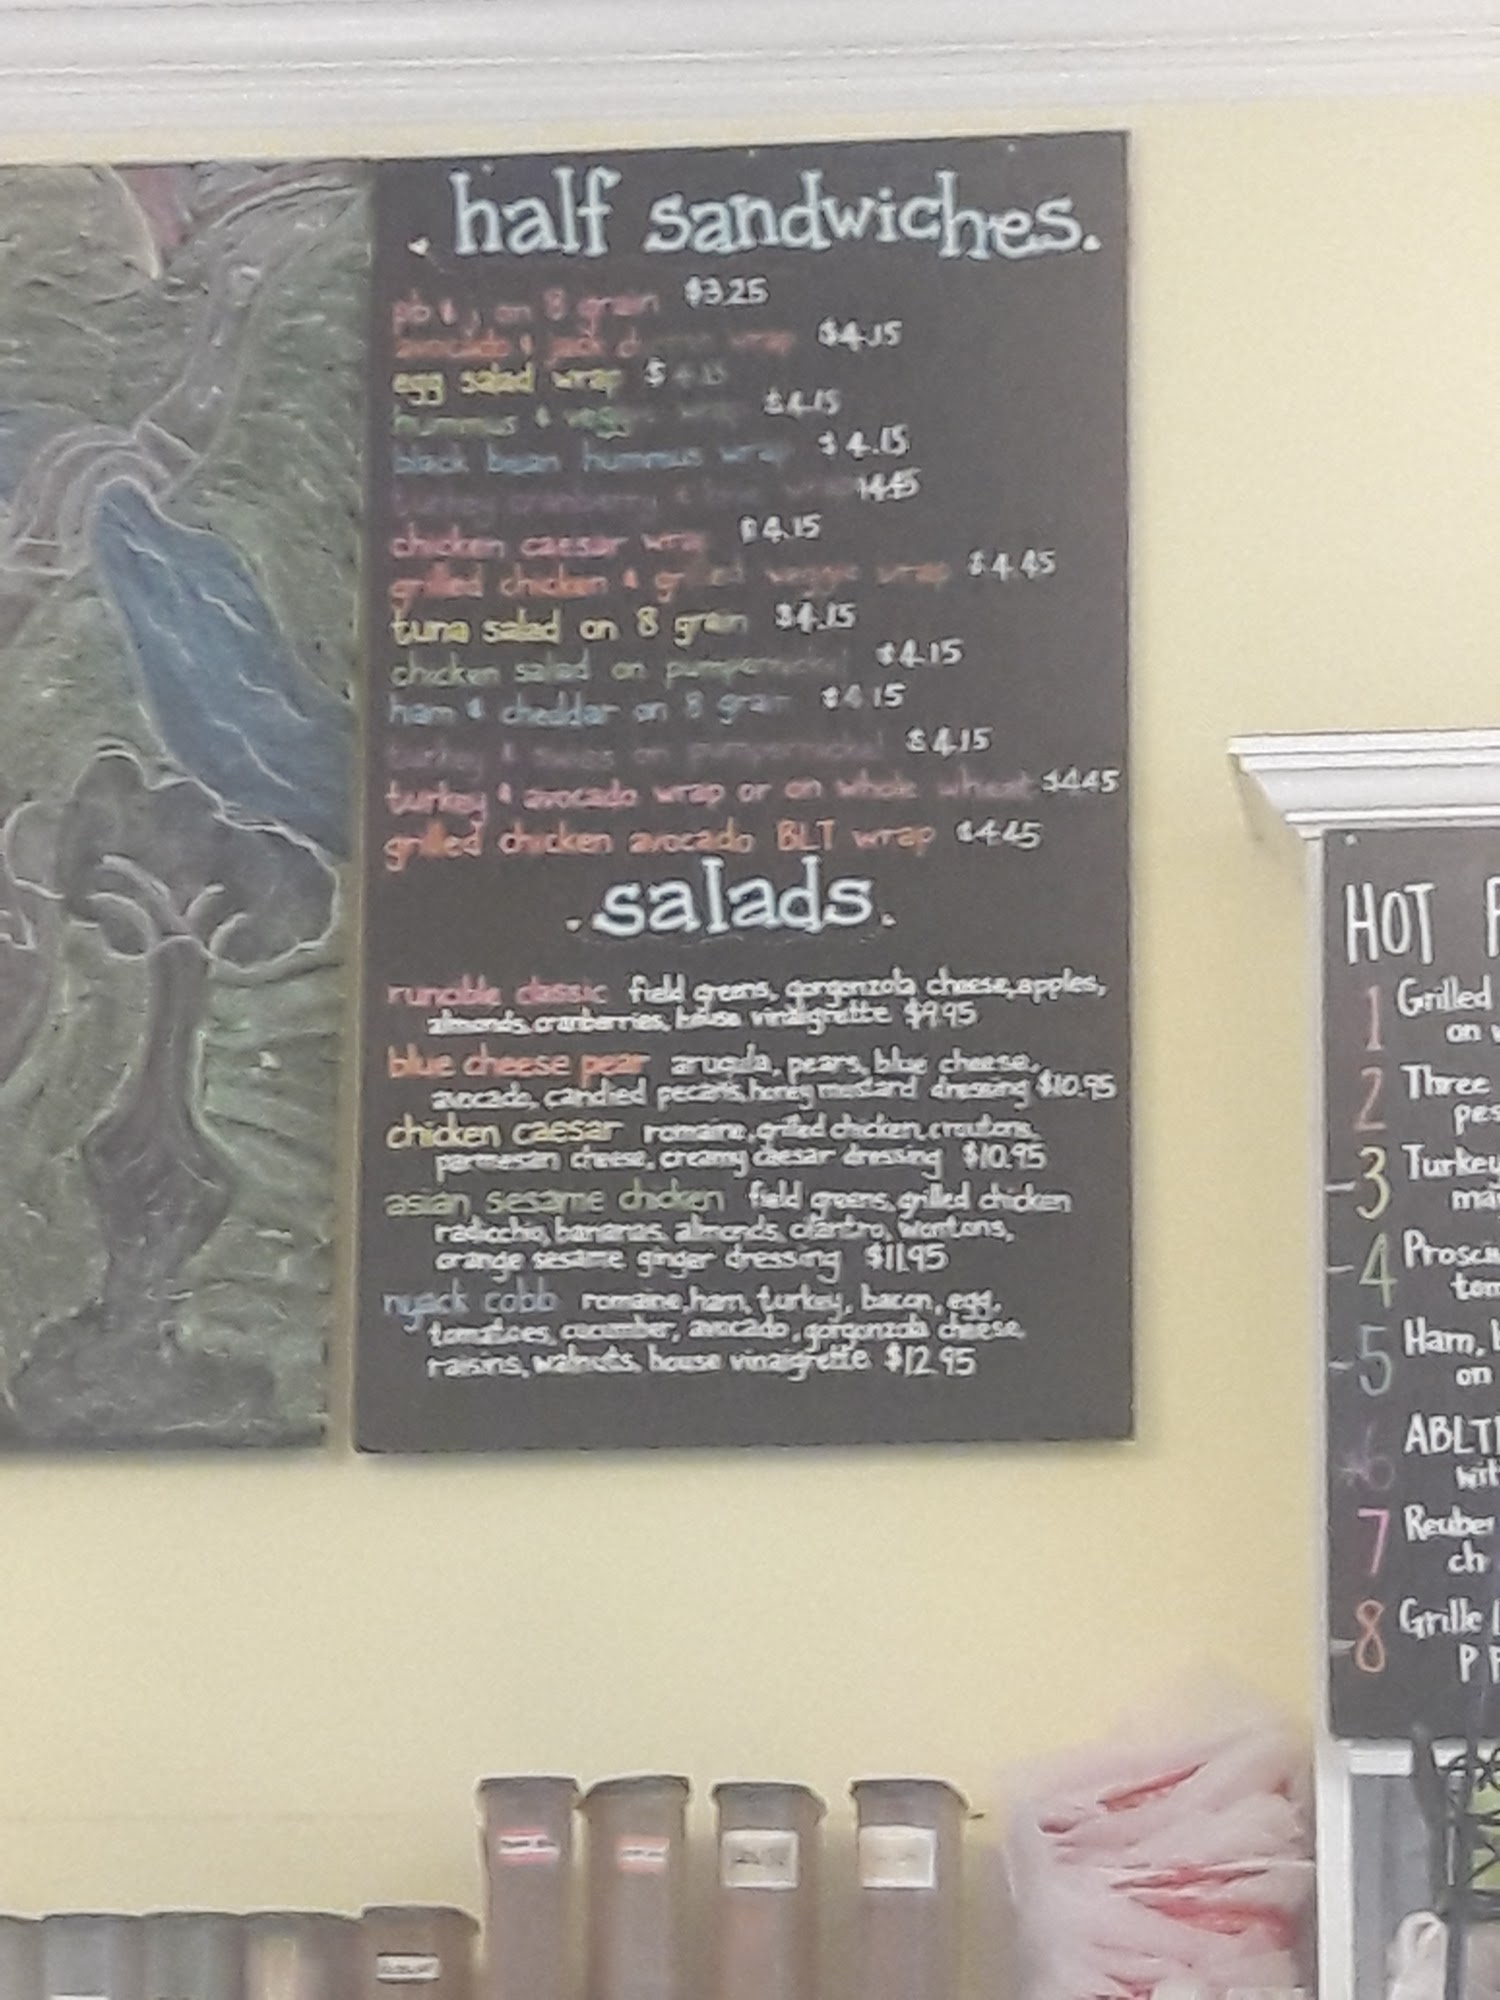 half sandwiches.
pb & j on 8 grain $3.25
avocado & jack wrap $4.15
egg salad wrap $4.15
hummus & veggie wrap $4.15
black bean hummus wrap $4.15
turkey cranberry & $4.45
chicken caesar wrap $4.15
grilled chicken & grilled veggie wrap $4.45
tuna salad on 8 grain $4.15
chicken salad on pumpernickel $4.15
ham & cheddar on 8 grain $4.15
turkey & swiss on pumpernickel $4.15
turkey & avocado wrap or on whole wheat $4.45
grilled chicken avocado BLT wrap $4.45
.salads.
runcible classic field greens, gorgonzola cheese, apples,
almonds, cranberries, house vinaigrette $9.95
blue cheese pear arugula, pears, blue cheese,
avocado, candied pecans, honey mustard dressing $10.95
chicken caesar romaine, grilled chicken, croutons,
parmesan cheese, creamy caesar dressing $10.95
asian sesame chicken field greens, grilled chicken
radicchio, bananas, almonds, cilantro, wontons,
orange sesame ginger dressing $11.95
nyack cobb romaine, ham, turkey, bacon, egg,
tomatoes, cucumber, avocado, gorgonzola cheese,
raisins, walnuts, house vinaigrette $12.95
HOT
1 Grilled
on
2 Three
pes
-3 Turkey
-4 Prosciu
tom
-5 Ham,
on
6 ABLT
wit
7 Reuben
ch
-8 Grille